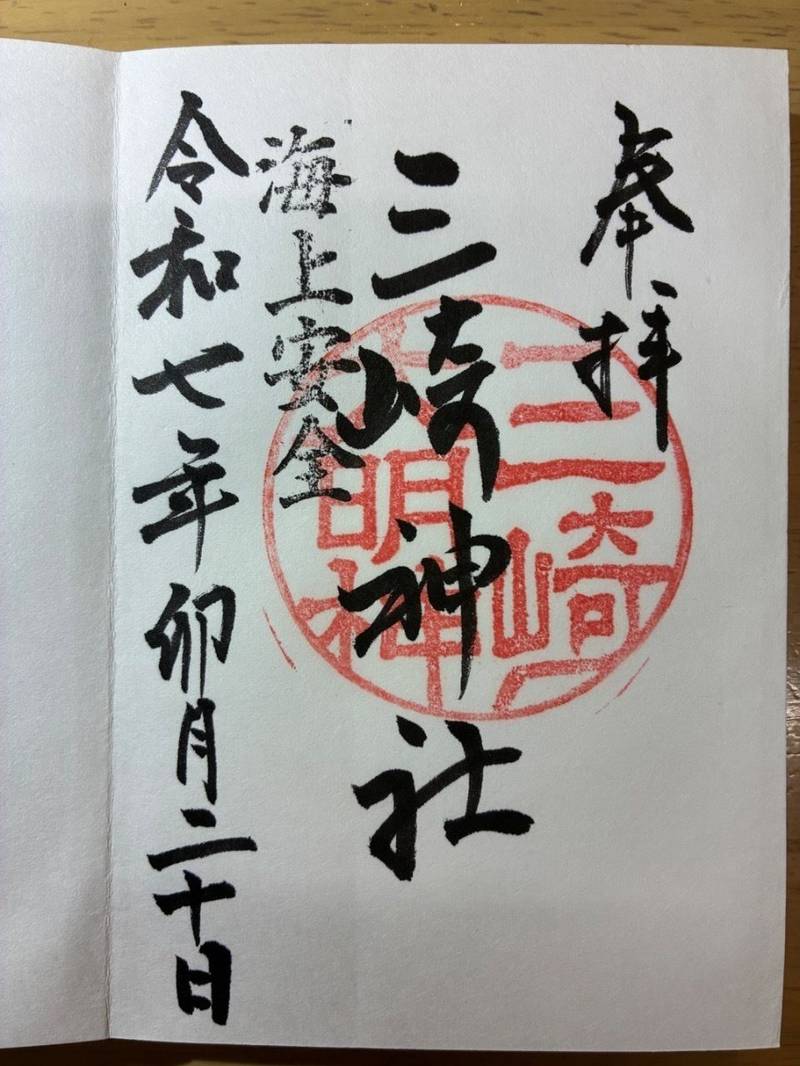 奉拝
三崎神社
海上安全
令和七年卯月二十日
三崎
大明神